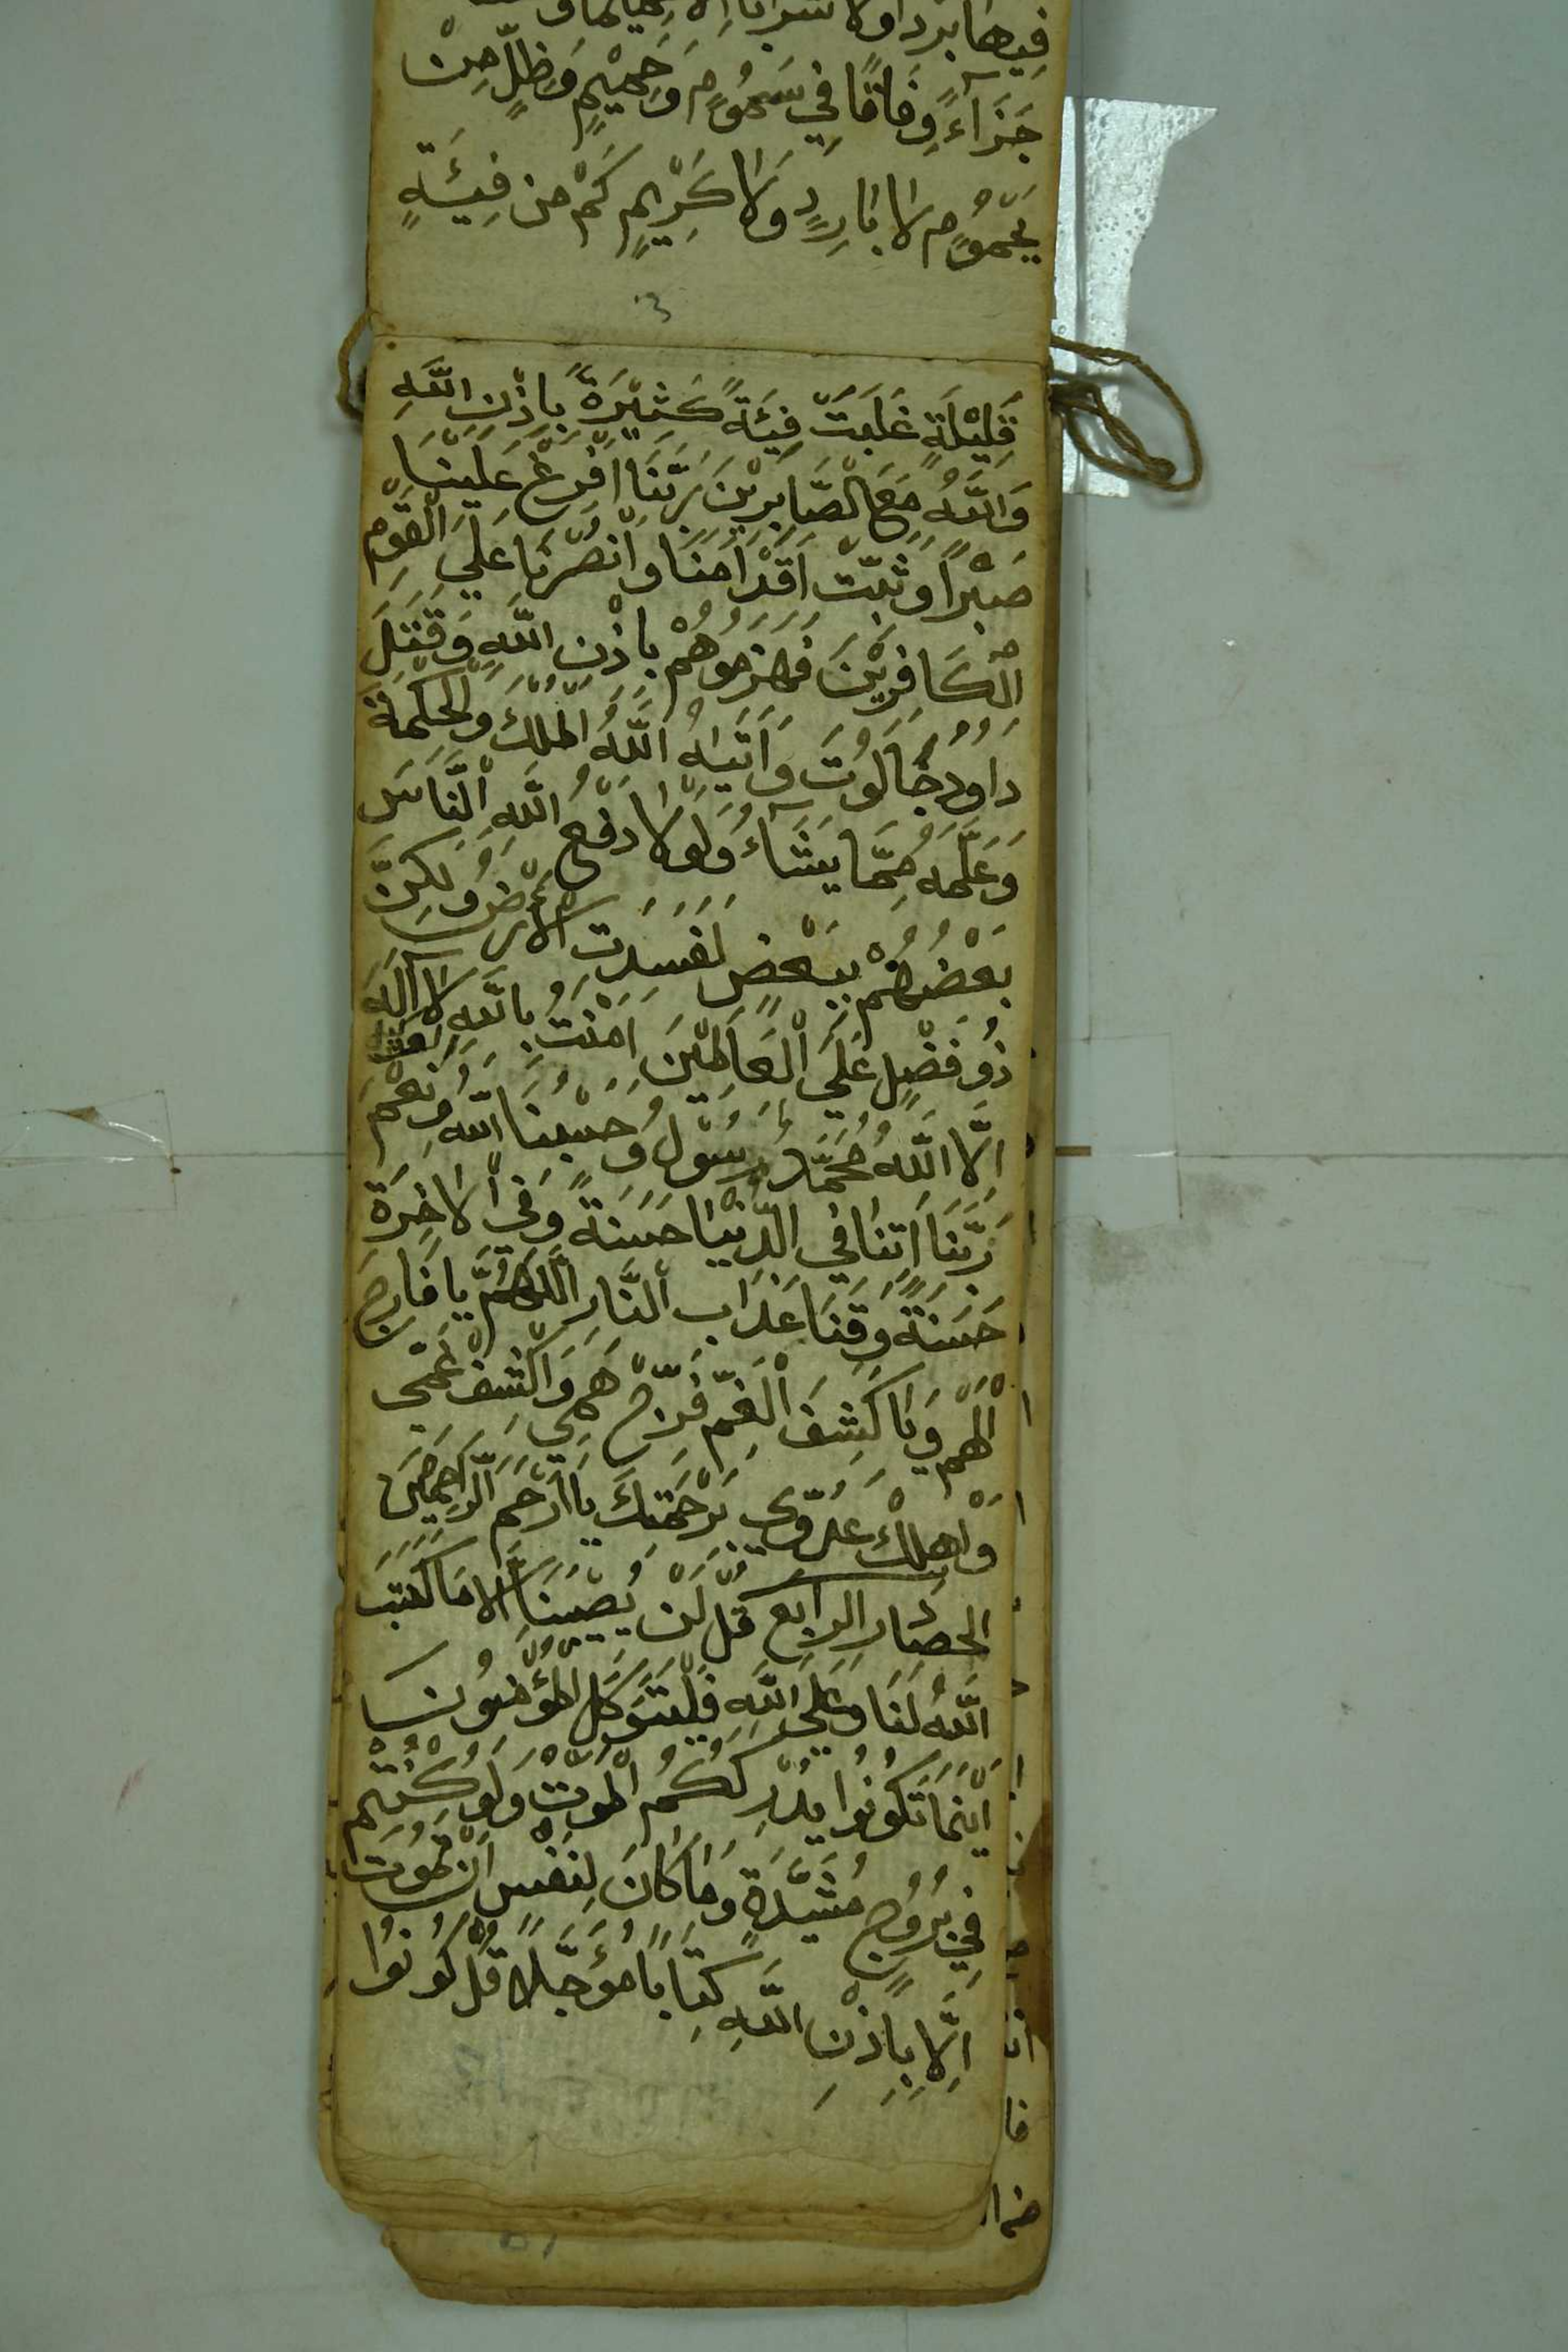 فِيهَا بَرْدًا وَلَا شَرَابًا اِلَّا
جَزَآءً وِفَاقًا فِي سَمُوْمٍ وَحَمِيْمٍ وَظِلٍّ مِنْ
يَحْمُوْمٍ لَا بَارِدٍ وَلَا كَرِيْمٍ كَمْ مِن فِئَةٍ
٣
قَلِيْلَةٍ غَلَبَتْ فِئَةً كَثِيْرَةً بِاِذْنِ اللَّهِ
وَاللَّهُ مَعَ الصَّابِرِيْنَ رَبَّنَا اَفْرِغْ عَلَيْنَا
صَبْرًا وَثَبِّتْ اَقْدَامَنَا وَانْصُرْنَا عَلَي الْقَوْمِ
الْكَافِرِيْنَ فَهَزَمُوهُمْ بِاذْنِ اللَّهِ وَقَتَلَ
دَاوُدُ جَالُوتَ وَآتَيهُ اللَّهُ الْمُلْكَ وَالْحِكْمَةَ
وَعَلَّمَهُ مِمَّا يَشَآءُ وَلَوْلَا دَفْعُ اللَّهِ النَّاسَ
بَعْضُهُمْ بِبَعْضٍ لَفَسَدَتِ الْاَرْضُ وَلَكِنَّ
ذُو فَضْلٍ عَلَي الْعَالَمِيْنَ اٰمَنْتُ بِاللَّهِ لَآ اِلَهَ
اِلَّا اللَّهُ مُحَمَّدٌ رَسُوْلُ وَحَسْبُنَا اللَّهُ وَنِعْمَ
رَبَّنَا اٰتِنَا فِي الدُّنْيَا حَسَنَةً وَفِي الْاٰخِرَةِ
حَسَنَةً وَقِنَا عَذَابَ النَّارِ اللَّهُمَّ يَا فَارِجَ
الْهَمِّ وَيَا كَشِفَ الْغَمِّ فَرِّجْ هَمِّي وَاكْشِفْ غَمِّي
وَاْهْلِكْ عَدُوِّي بِرَحْمَتِكَ يَا اَرْحَمَ الرَّاحِمِينَ
الحصار الرابع قُلْ لَنْ يُصِيْبَنَا اِلَّا مَا كَتَبَ
اللَّهُ لَنَا وَعَلَي اللَّهِ فَلْيَتَوَكَّلِ الْمُؤْمِنُونَ
اَيْنَمَا تَكُونُوا يُدْرِكْكُمُ الْمَوْتُ وَلَوْ كُنْتُمْ
فِي بُرُوجٍ مُشَيَّدَةٍ وَمَا كَانَ لِنَفْسٍ اَنْ تَمُوتَ
اِلَّا بِاِذْنِ اللَّهِ كِتَابًا مُؤَجَّلًا قُلْ كُونُوا